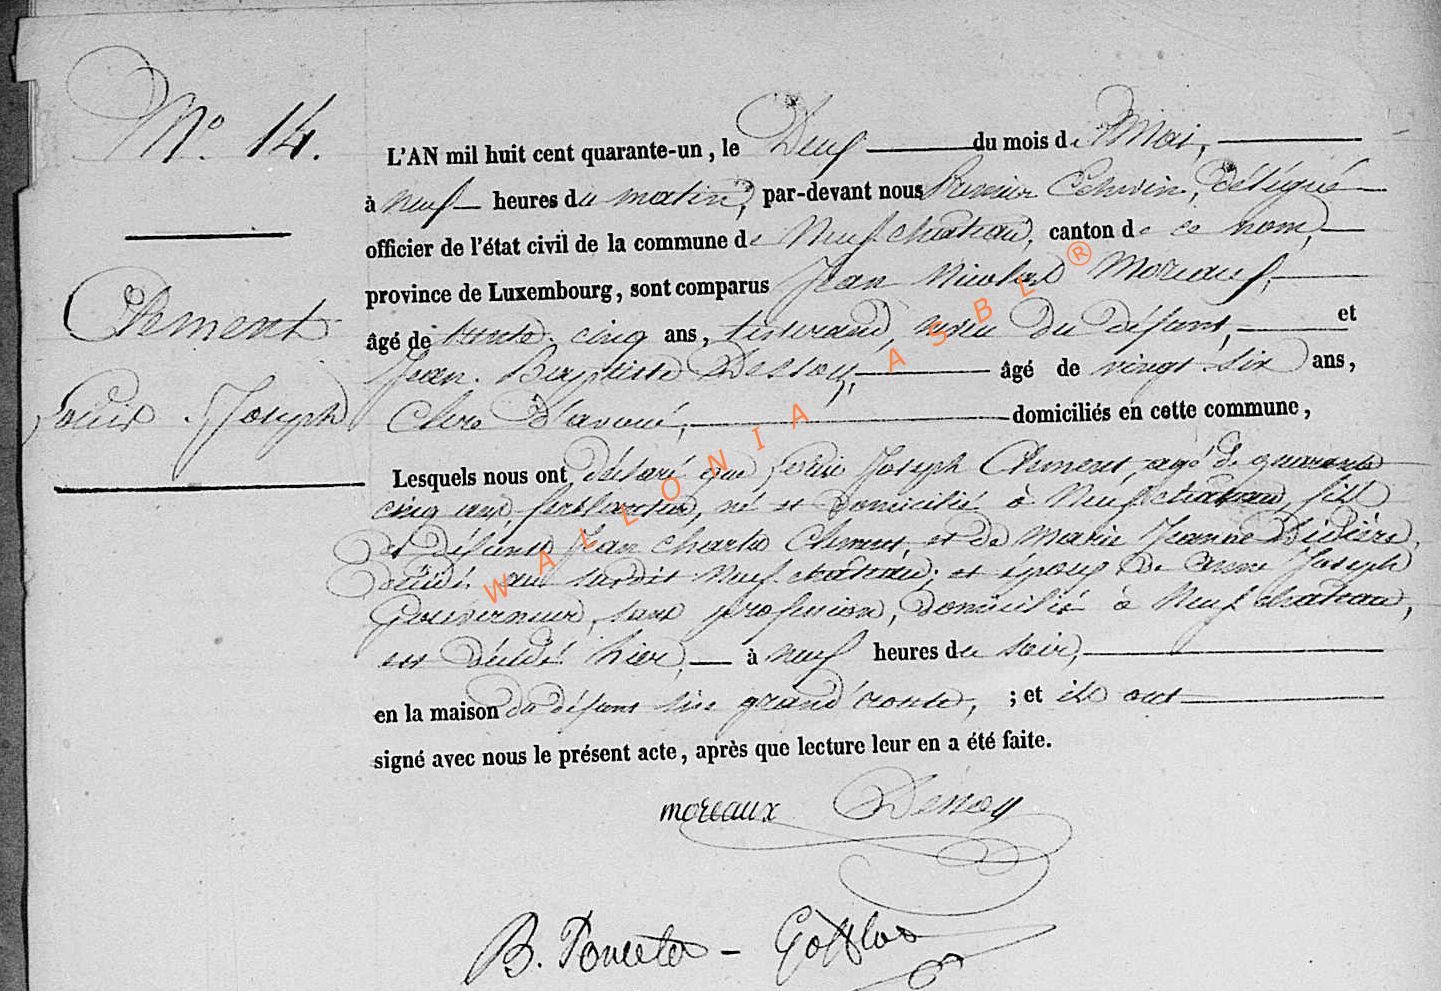 N° 14.
Clement
Louis Joseph
L'AN mil huit cent quarante-un, le Deux du mois de Mai,
à neuf heures du matin, par-devant nous Premier Echevin, délégué
officier de l'état civil de la commune de Neufchateau, canton de ce nom,
province de Luxembourg, sont comparus Jean Nicolas Moreaux,
âgé de trente-cinq ans, tisserand, neveu du défunt, et
Jean-Baptiste Dessoy, âgé de vingt six ans,
Clerc d'avoué, domiciliés en cette commune,
Lesquels nous ont déclaré que Louis Joseph Clement agé de quarante
cinq ans, ferblantier, né et domicilié à Neufchateau, fils
des défunts Jean Charles Clement, et de Marie Jeanne
décédés au susdit Neufchateau; et époux de Anne Joseph
Gouverneur, sans profession, domiciliée à Neufchateau,
est décédé hier, à neuf heures du soir,
en la maison du défunt sise grand'route, ; et ils ont
signé avec nous le présent acte, après que lecture leur en a été faite.
moreaux Dessoy
B. Poncelet -
WALLONIA ASBL ®